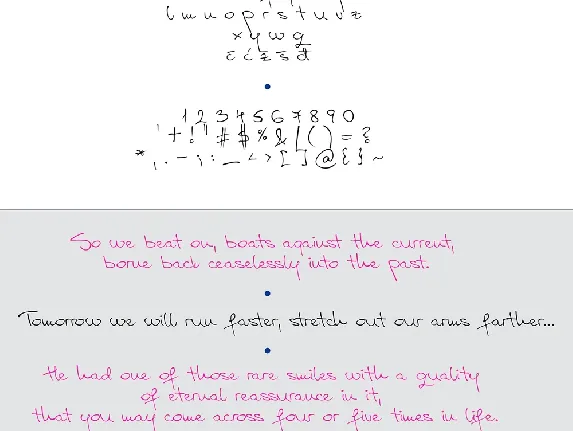 l m n o p r s t u v z
x y w q
č ć ž š đ
1 2 3 4 5 6 7 8 9 0
' + ! " # $ % & / ( ) = ?
* , . - ; : _ < > [ ] @ { } ~
So we beat on, boats against the current,
borne back ceaselessly into the past.
Tomorrow we will run faster, stretch out our arms farther...
He had one of those rare smiles with a quality
of eternal reassurance in it,
that you may come across four or five times in life.